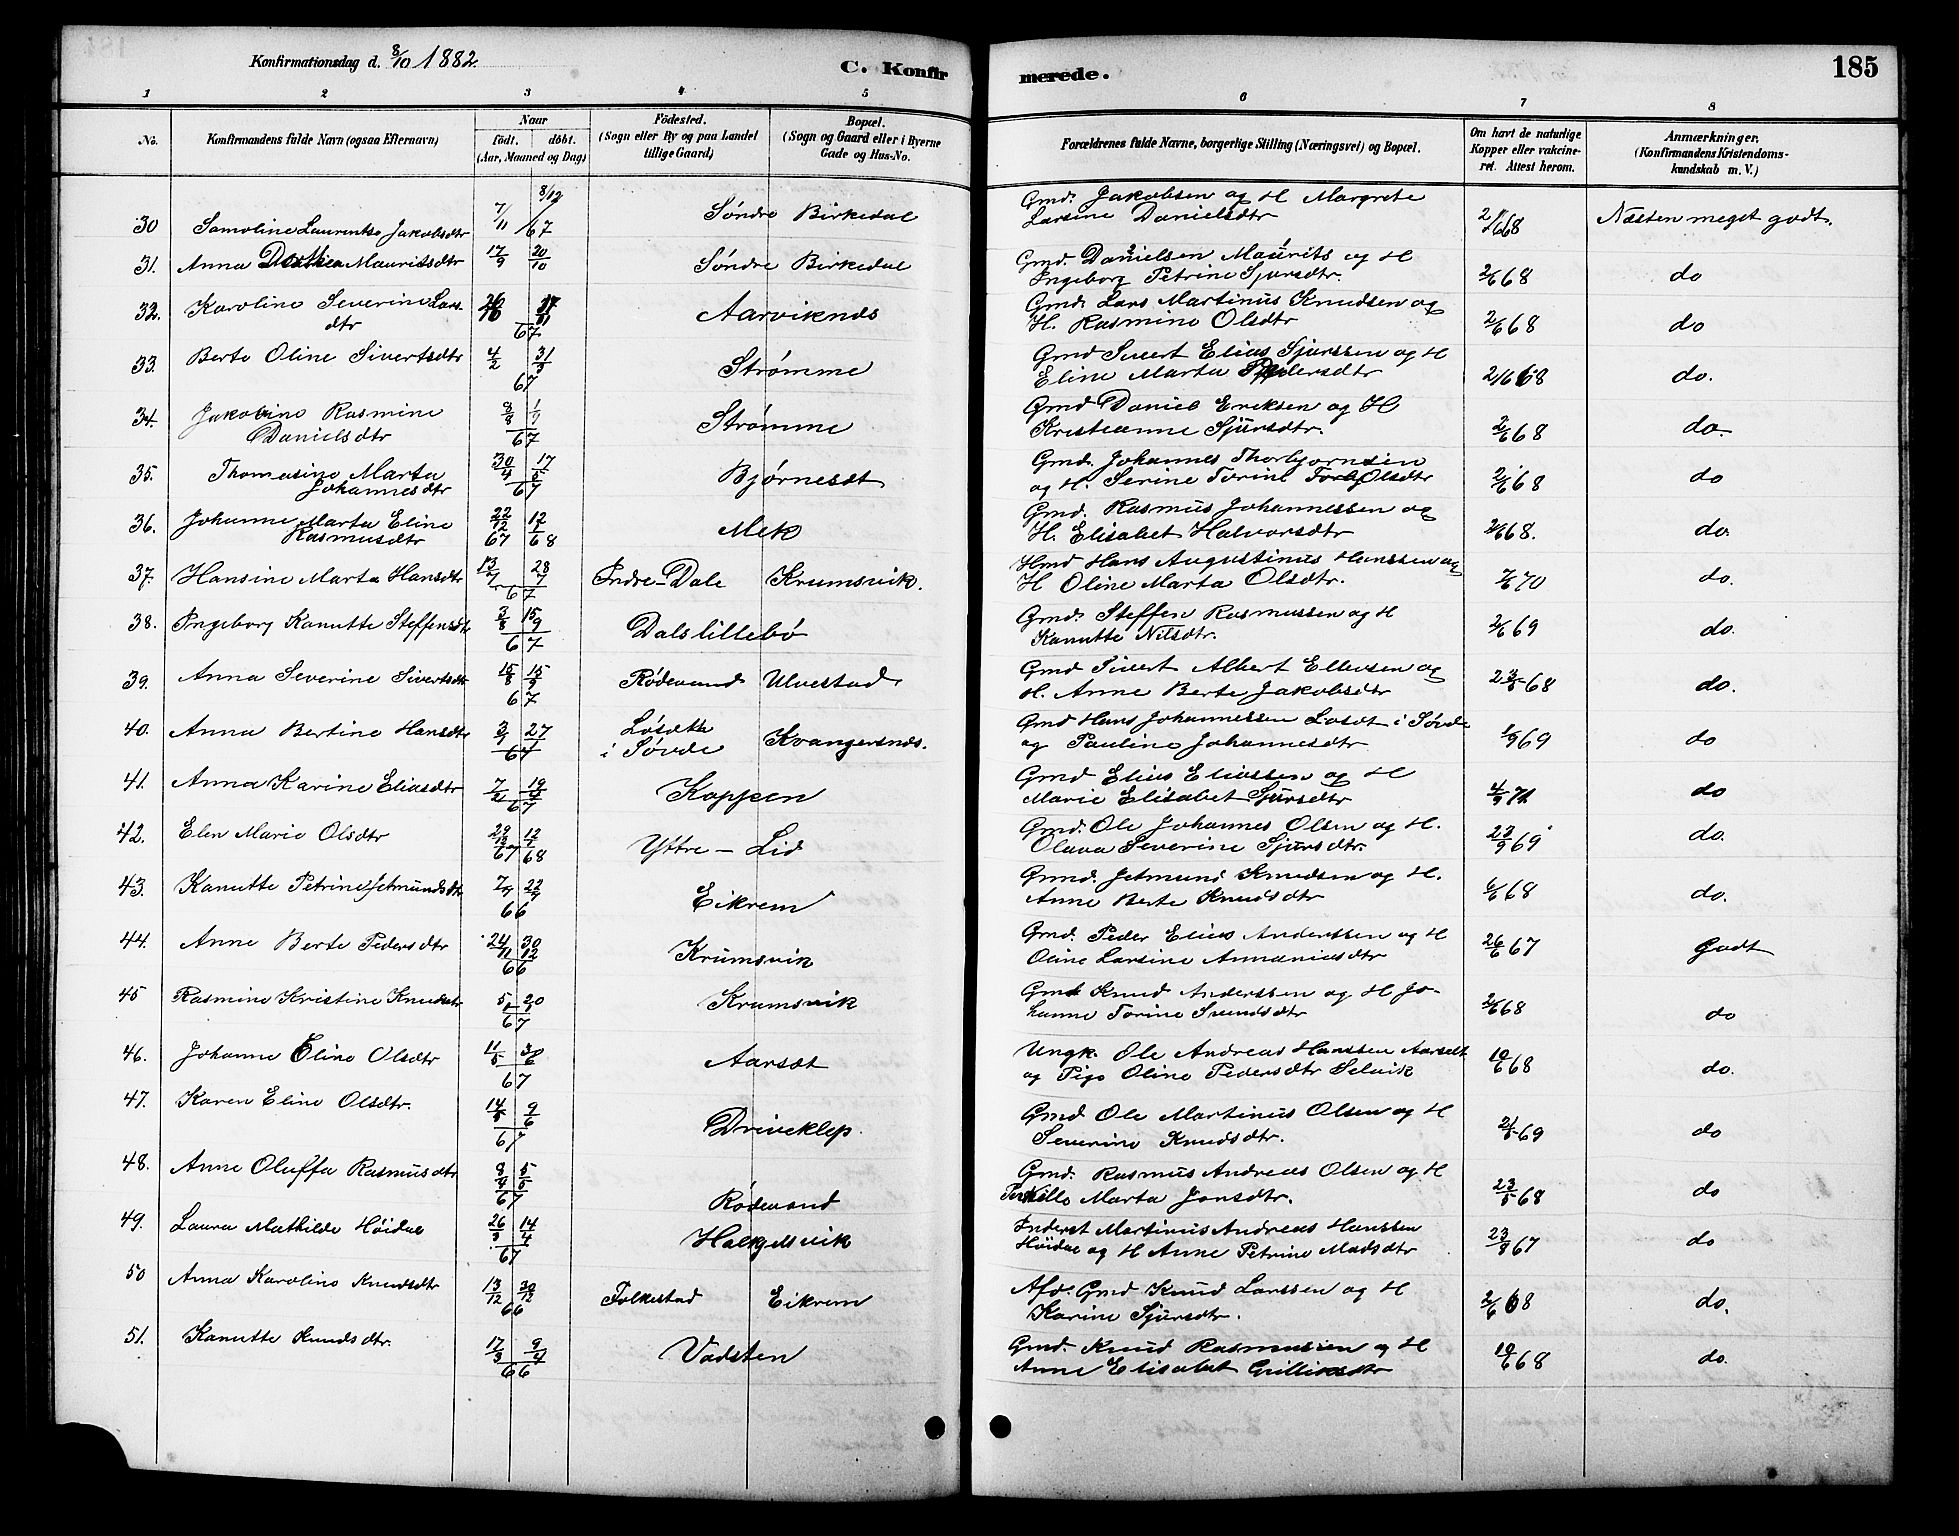 Konfirmationsdag d. 8/10 1882.
C. Konfirmerede.
185
1 2 3 4 5 6 7 8
No.
Konfirmandens fulde Navn (ogsaa Efternavn)
Naar
født. døbt.
(Aar, Maaned og Dag)
Fødested.
(Sogn eller By og paa Landet
tillige Gaard)
Bopæl.
(Sogn og Gaard eller i Byerne
Gade og Hus-No.
Forældrenes fulde Navne, borgerlige Stilling (Næringsvei) og Bopæl.
Om havt de naturlige
Kopper eller vakcine-
ret. Attest herom.
Anmærkninger,
(Konfirmandens Kristendoms-
kundskab m. V.)
30 Samoline Laurentse Jakobsdtr 7/11 8/12 67 Søndre Birkedal Gmd. Jakobsen og H Margrete
Larsine Danielsdtr 2/6 68 Næsten meget godt.
31. Anna Dorthea Mauritsdtr 17/9 20/10 Søndre Birkedal Gmd. Danielsen Maurits og H
Ingeborg Petrine Sjursdtr. 2/6 68 do
32. Karoline Severine Lars-
dtr 67 Aarviknæs Gmd. Lars Martinus Knudsen og
H. Rasmine Olsdtr 2/6 68 do
33. Berte Oline Sivertsdtr 4/2 31/3 67 Strømme Gmd Sivert Elias Sjurssen og H
Eline Marta Pedersdtr 2/6 68 do.
34. Jakobine Rasmine
Danielsdtr 67 Strømme Gmd Daniel Eriksen og H
Kristianne Sjursdtr. 2/6 68 do.
35. Thomasine Marta
Johannesdtr 30/4 17/5 67 Bjørnesæt Gmd. Johannes Thorbjørnsen
og H. Serine Torine Olsdtr 2/6 68 do
36. Johanne Marta Eline
Rasmusdtr 22/12 67 12/1 68 Mek Gmd. Rasmus Johannessen og
H. Elisabet Halvorsdtr 2/6 68. do.
37. Hansine Marta Hansdtr 13/7 28/7 67 Indre-Dale Krumsvik. Hmd Hans Augustinus Hanssen og
H Oline Marta Olsdtr. 70 do.
38. Ingeborg Kanutte Steffensdtr 3/8 15/9 67 Dalslillebø Gmd. Steffen Rasmussen og H
Kanutte Nilsdtr. 2/6 69 do.
39. Anna Severine Sivertsdtr 15/8 15/9 67 Rødesand Ulvestad Gmd Sivert Albert Ellevsen og
H. Anne Berte Jakobsdtr 68 do.
40. Anna Bertine Hansdtr 67 Løsæth
i Søvde Kvangersnæs. Gmd Hans Johannessen Løsæt i Søvde
og Pauline Johannesdtr 69 do
41. Anna Karine Eliasdtr 67 Koppen Gmd Elias Eliassen og H
Marie Elisabet Sjursdtr 4/9 71 do
42. Elen Marie Olsdtr 67 68 Yttre-Lid Gmd. Ole Johannes Olsen og H.
Olava Severine Sjursdtr. 23/9 69 do.
43. Kanutte Petrine Jetmundsdtr 66 Eikrem Gmd. Jetmund Knudsen og H.
Anne Berte Knudsdtr 68 do.
44. Anne Berte Pedersdtr 24/11 30/12 66 Krumsvik Gmd. Peder Elias Anderssen og H
Oline Larsine Annaniasdtr 26/6 67 Godt
45 Rasmine Kristine Knudsdtr 67 Krumsvik Gmd Knud Anderssen og H Jo-
hanne Torine Svendsdtr 2/6 68 do
46. Johanne Eline Olsdtr 11/5 3/6 67 Aarsæt Ungk. Ole Andreas Hanssen Aarsæt
og Pige Oline Pedersdtr Selvik 10/6 68 do.
47. Karen Eline Olsdtr. 14/5 9/6 67 Driveklep. Gmd Ole Martinus Olsen og H
Severine Knudsdtr. 69 do
48. Anne Oluffa Rasmusdtr 67 Rødesand Gmd. Rasmus Andreas Olsen og H
Marta Jonsdtr. 23/5 68 do
49. Laura Mathilde Høidal 26/3 14/4 67 Halkjelsvik Inderst Martinus Andreas Hanssen
Høidal og H Anne Petrine Madsdtr 67 do
50 Anna Karoline Knudsdtr 13/12 30/12 66 Folkestad Eikrem Afd. Gmd Knud Larssen og H
Karine Sjursdtr. 2/6 68 do.
51. Kanutte Knudsdtr. 17/3 9/4 66 Vadsten Gmd. Knud Rasmussen og H
Anne Elisabet 10/6 68 do.